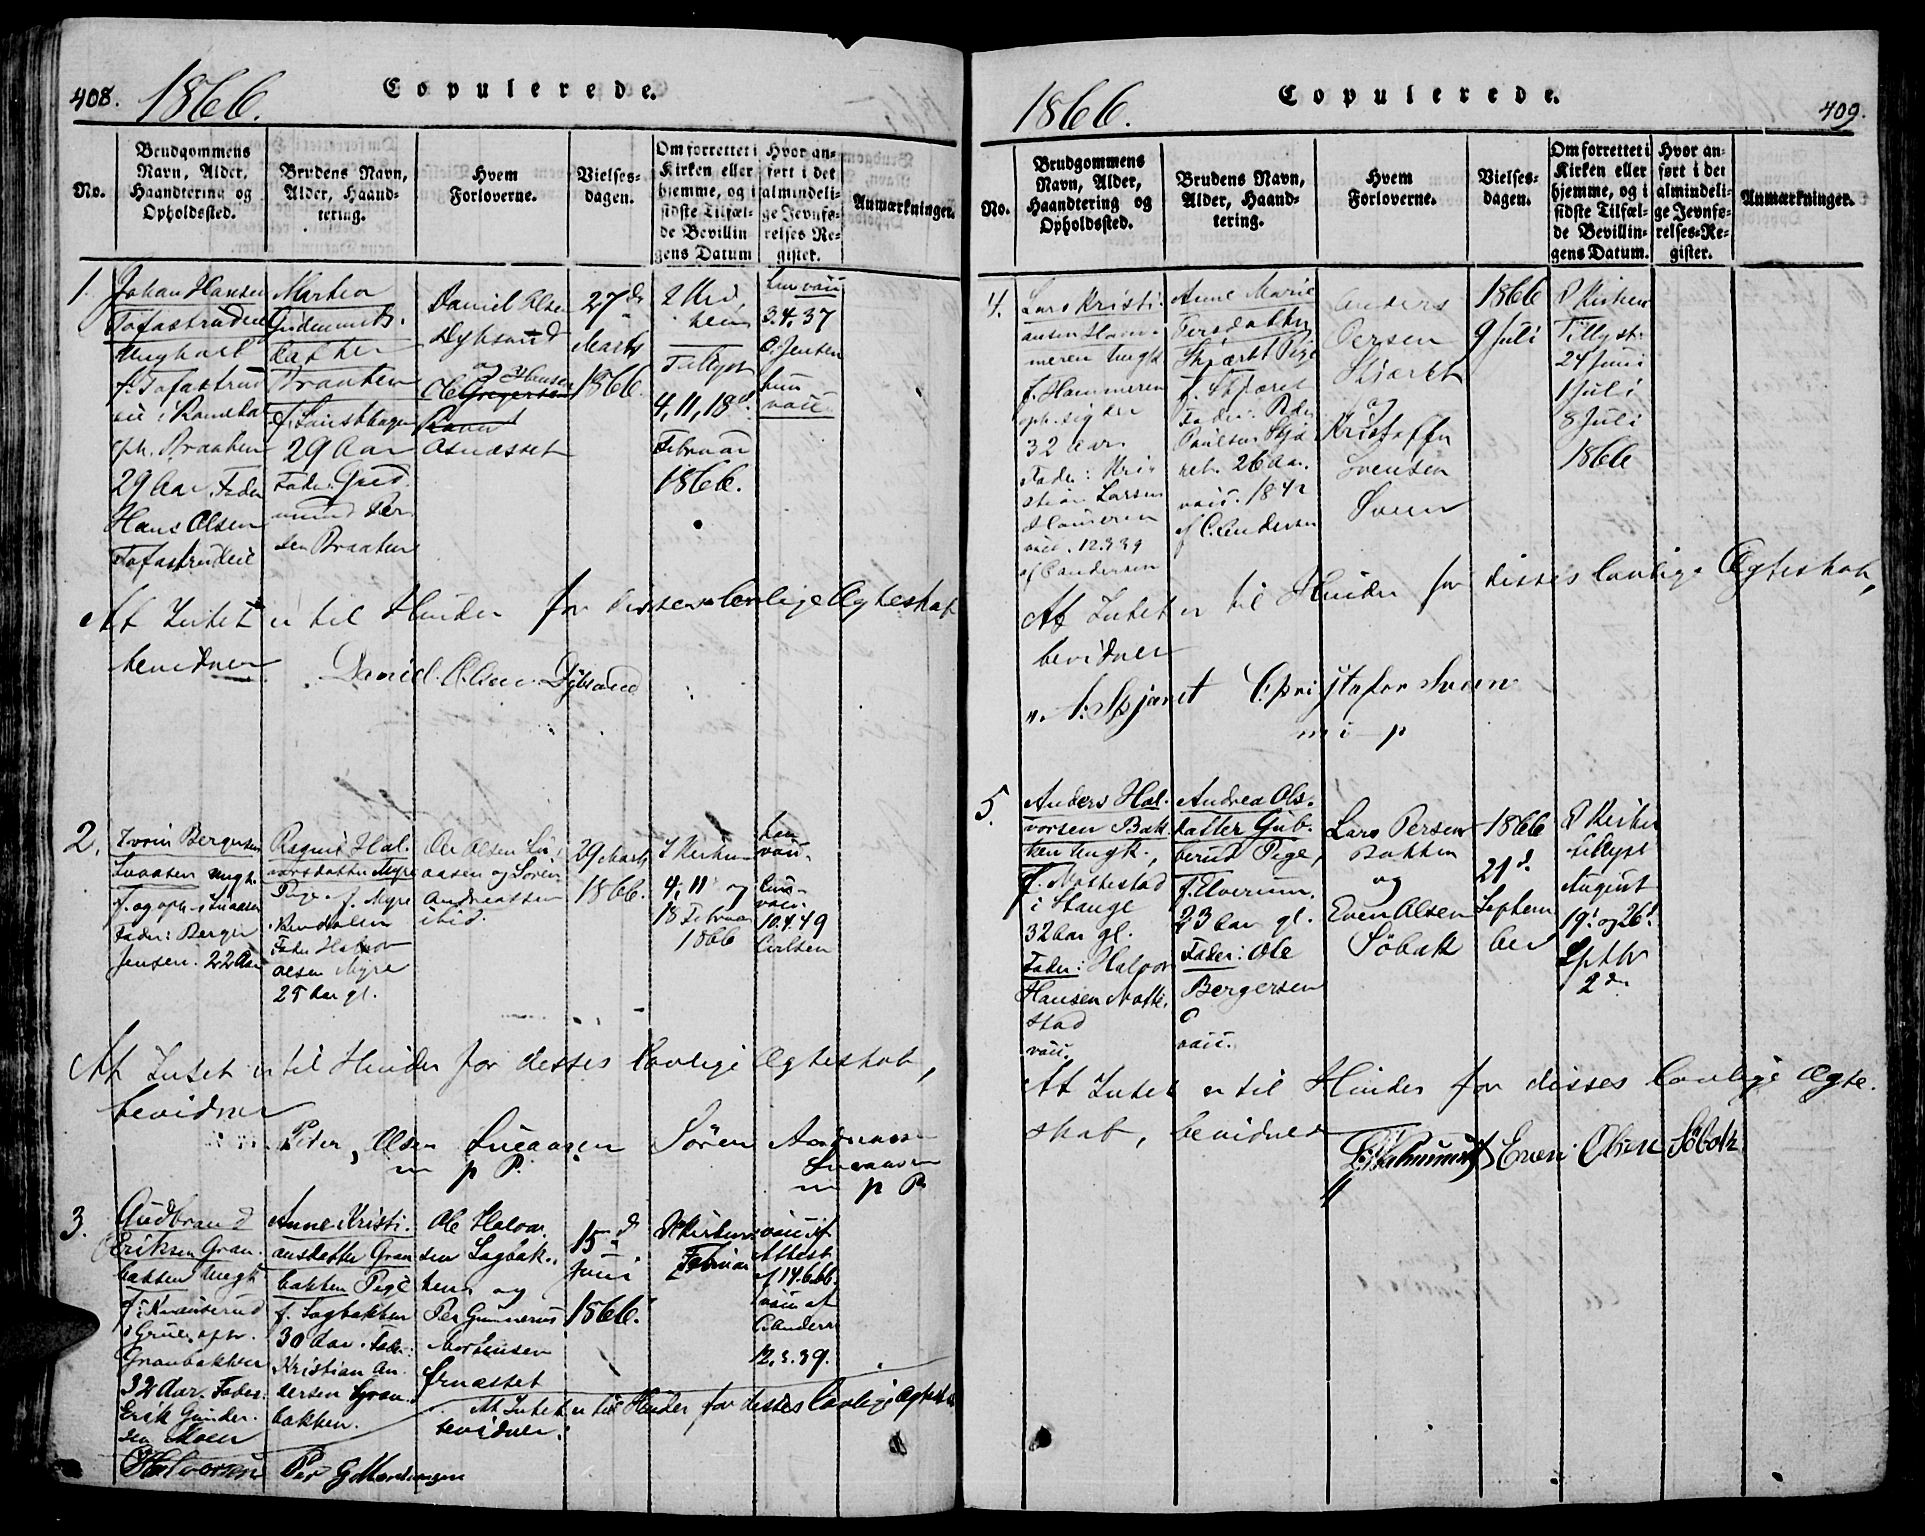 408. 1866. Copulerede.
No.
Brudgommens
Navn, Alder,
Haandtering og
Opholdssted.
Brudens Navn,
Alder, Haand-
tering.
Hvem
Forloverne.
Vielses-
dagen.
Om forrettet i
Kirken eller
hjemme, og i
sidste Tilfæl-
de Bevillin
gens Datum
Hvor an-
ført i det
almindeli-
ge Jevnfø-
relses-Re-
gister.
Anmærkninger.
1.
Johan Hansen
Tofastrudeie
Ungkarl
f. Tofastrud
eie i Romedal
oph. Braaten
29 Aar. Fader
Hans Olsen
Tofastrudeie
Marthea
Gudmunds-
datter
Braaten
29 Aar
Fader: Gud
mund Per
sen Braaten
Daniel Olsen
Dybsand
og
Asnæsset
27de
Marts
1866.
Tillyst
4, 11, 18de
Februar
1866.
3.4.37
O. Jensen
hun
vacc.
At Intet er til Hinder for disses lovlige Ægteskab
bevidner
Daniel Olsen Dybsand
2.
Bergersen
ungk.
f. og oph.
Fader: Berger
Jensen. 22 Aar
Ragnil Hal-
vorsdatter Myre
Pige. f. Myre
Fader Halvor
Olsen Myre
25 Aar gl.
Olsen
og Søren
Andreassen
ibid.
29 Marts
1866.
I Kirken
4, 11 og
18 Februar
1866
han
vacc.
10.4.49
At Intet er til Hinder for disses lovlige Ægteskab,
bevidner
Peter Olsen Søren Andreassen
m p P.
m p P
3.
Gudbrand
Eriksen Gran-
bakken Ungk
i Grue. oph.
Granbakken
32 Aar. Fader
Erik Gunder-
sen Moen
Anne Kristi-
ansdatter Gran
bakken Pige
f. Sagbakken
30 Aar. Fader:
Kristian An-
dersen Gran-
bakken.
Ole Halvor
sen Sagbak-
ken og
Per Gunnerus
Mortensen
Ornæsset
15de
Juni
1866.
I Kirken
Februar
vacc. af
Attest
af 14.6.66.
vacc af
C. Anders
12.3.39.
At Intet er til Hinder for disses lovlige Ægteskab
bevidner:
O Halvorsen Per G Mortensen
1866. Copulerede. 409.
No.
Brudgommens
Navn, Alder,
Haandtering og
Opholdssted.
Brudens Navn,
Alder, Haand-
tering.
Hvem
Forloverne.
Vielses-
dagen.
Om forrettet i
Kirken eller
hjemme, og i
sidste Tilfæl-
de Bevillin-
gens Datum.
Hvor an-
ført i det
almindeli-
ge Jevnfø-
relses-Re-
gister.
Anmærkninger.
4.
Lars Kristi-
ansen Ham-
meren Ungk
f. Hammeren
32 Aar
Fader: Kri-
stian Larsen
Hameren
vacc. 12.3.39
af C Andersen
Anne Marie
Persdatter
Skjæret Pige
f. Skjæret
Fader: Peder
Paulsen Skjæ
ret. 26 Aar.
vacc. 1842
af C. Andersen
Anders
Persen
Skjæret
og
Kristoffer
Svensen
Sveen
1866
9 Juli
I Kirken
Tillyst
24 Juni
1 Juli
8 Juli
1866
At Intet er til Hinder for disses lovlige Ægteskab,
bevidner
A. Skjæret Christofer Sveen
m p
5.
Anders Hal-
vorsen Bak
ken Ungk.,
f. Mostestad
i Stange
32 Aar gl.
Fader: Halvor
Hansen Moste-
stad
vacc.
Andrea Ols-
datter Gub-
berud Pige,
f. Elverum.
23 Aar gl.
Fader: Ole
Bergersen
vacc.
Lars Persen
Bakken
og
Even Olsen
Søbak
1866
21de
Septem
ber
I Kirken
tillyst
August
19de og 26de
Septbr
2den
At Intet er til Hinder for disses lovlige Ægte-
skab, bevidner
Even Olsen Søbak